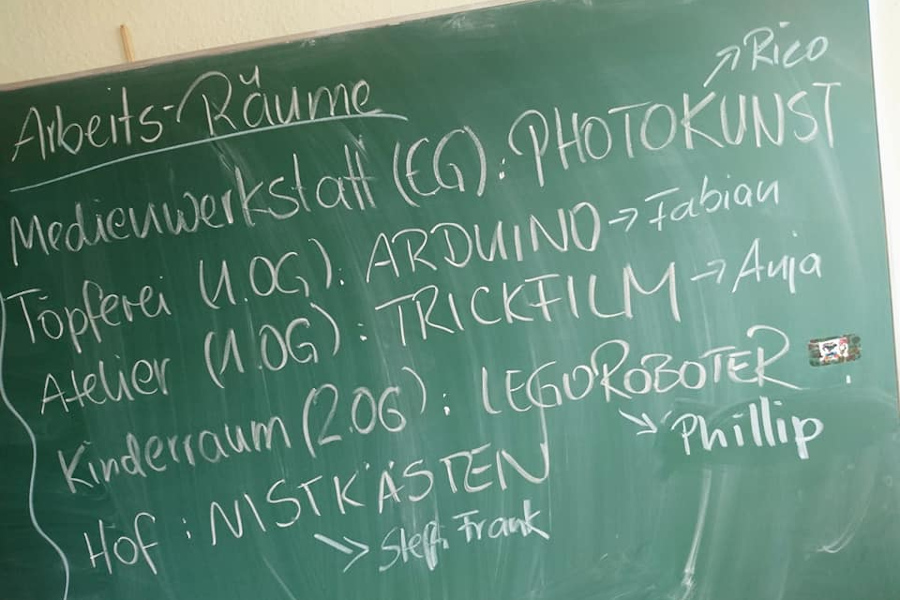 →Rico
Arbeits-Räume
Medienwerkstatt (EG): PHOTOKUNST
Töpferei (1.OG): ARDUINO→Fabian
Atelier (1.OG): TRICKFILM→Anja
Kinderraum (2.OG): LEGOROBOTER
→Phillip
Hof: NISTKÄSTEN
→Steffi Frank